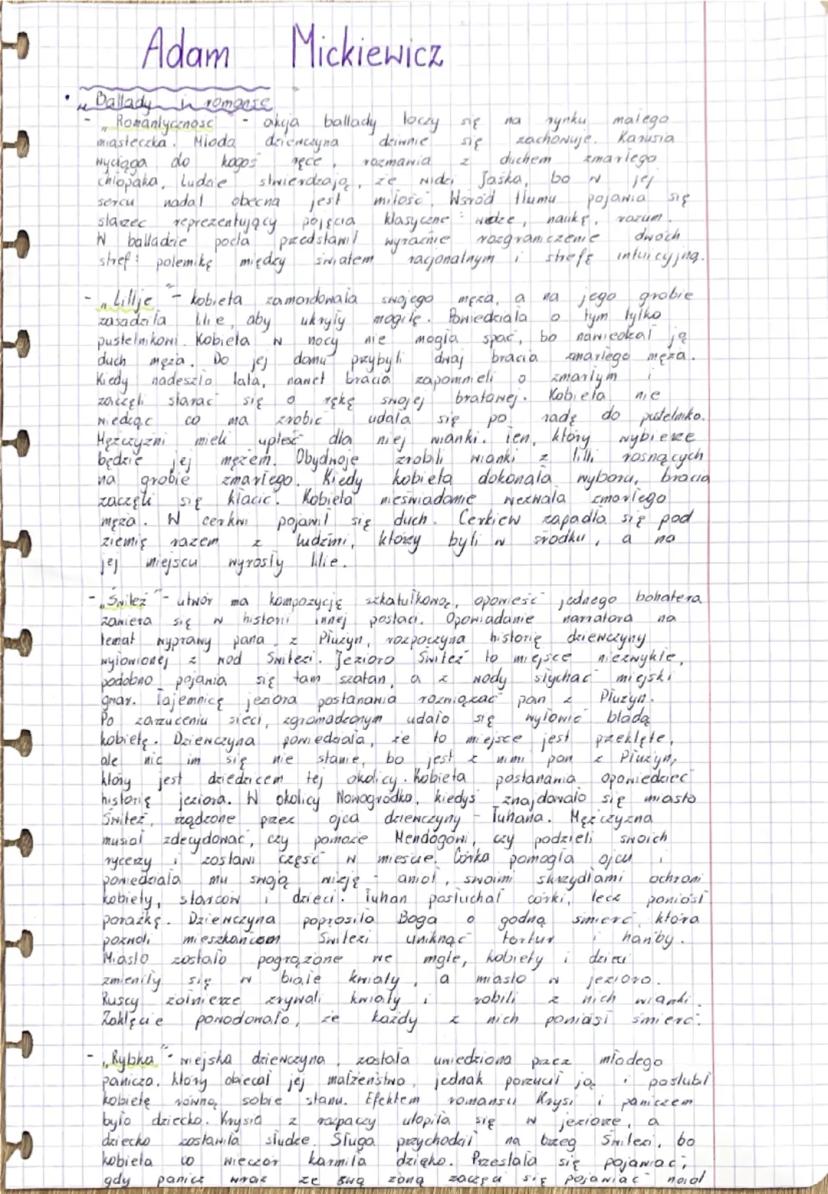 Adam Mickiewicz
• „Ballady i romanse
- „Romantyczność" - akcja ballady toczy się na rynku małego
miasteczka. Młoda dziewczyna dziwnie się zachowuje. Karusia
wyciąga do kogoś ręce, rozmawia z duchem zmarłego
chłopaka. Ludzie stwierdzają, że widzi Jaśka, bo w jej
sercu nadal obecna jest miłość. Wśród tłumu pojawia się
starzec reprezentujący pojęcia klasyczne: wiedzę, naukę, rozum.
W balladzie poeta przedstawił wyraźnie rozgraniczenie dwóch
stref: polemikę między światem racjonalnym i strefę intuicyjną.
- „Lillje" - kobieta zamordowała swojego męża, a na jego grobie
zasadziła lilie, aby ukryły mogiłę. Powiedziała o tym tylko
pustelnikowi. Kobieta w nocy nie mogła spać, bo nawiedzał ją
duch męża. Do jej domu przybyli dwaj bracia zmarłego męża.
Kiedy nadeszło lata, nawet bracia zapomnieli o zmarłym i
zaczęli starać się o rękę swojej bratowej. Kobieta nie
wiedząc co ma zrobić udała się po radę do pustelnika.
Mężczyźni mieli upleść dla niej wianki. Ten, który wybierze
będzie jej mężem. Obydwoje zrobili wianki z lilli rosnących
na grobie zmarłego. Kiedy kobieta dokonała wyboru, bracia
zaczęli się kłócić. Kobieta nieświadomie wezwała zmarłego
męża. W cerkwi pojawił się duch. Cerkiew zapadła się pod
ziemię razem z ludźmi, którzy byli w środku, a na
jej miejscu wyrosły lilie.
- „Świteź" - utwór ma kompozycję szkatułkową, opowieść jednego bohatera
zawiera się w historii innej postaci. Opowiadanie narratora na
temat wyprawy pana z Płużyn, rozpoczyna historię dziewczyny
wyłowionej z wód Świtezi. Jezioro Świteź to miejsce niezwykłe,
podobno pojawia się tam szatan, a z wody słychać miejski
gwar. Tajemnicę jeziora postanawia rozwiązać pan z Płużyn.
Po zarzuceniu sieci, zgromadzonym udało się wyłowić bladą
kobietę. Dziewczyna powiedziała, że to miejsce jest przeklęte,
ale nic im się nie stanie, bo jest z nimi pan z Płużyn,
który jest dziedzicem tej okolicy. Kobieta postanawia opowiedzieć
historię jeziora. W okolicy Nowogródka, kiedyś znajdowało się miasto
Świteź, rządzone przez ojca dziewczyny - Tuhana. Mężczyzna
musiał zdecydować, czy pomoże Mendogowi, czy podzieli swoich
rycerzy i zostawi część w mieście. Córka pomogła ojcu i
powiedziała mu swoją wizję - anioł, swoimi skrzydłami ochroni
kobiety, starców i dzieci. Tuhan posłuchał córki, lecz poniósł
porażkę. Dziewczyna poprosiła Boga o godną śmierć, która
pozwoli mieszkańcom Świtezi uniknąć tortur i hańby.
Miasto zostało pogrążone we mgle, kobiety i dzieci
zmieniły się w białe kwiaty, a miasto w jezioro.
Ruscy żołnierze zrywali kwiaty i robili z nich wianki.
Zaklęcie powodowało, że każdy z nich poniósł śmierć.
- „Rybka" - wiejska dziewczyna, została uwiedziona przez młodego
panicza, który obiecał jej małżeństwo, jednak porzucił ją i poślubił
kobietę równą sobie stanu. Efektem romansu Krysi i paniczem
było dziecko. Krysia z rozpaczy utopiła się w jeziorze, a
dziecko zostawiła słudze. Sługa przychodził na brzeg Świtezi, bo
kobieta co wieczór karmiła Przestała się pojawiać,
gdy panicz wraz ze swą żoną zaczęli się pojawiać nad